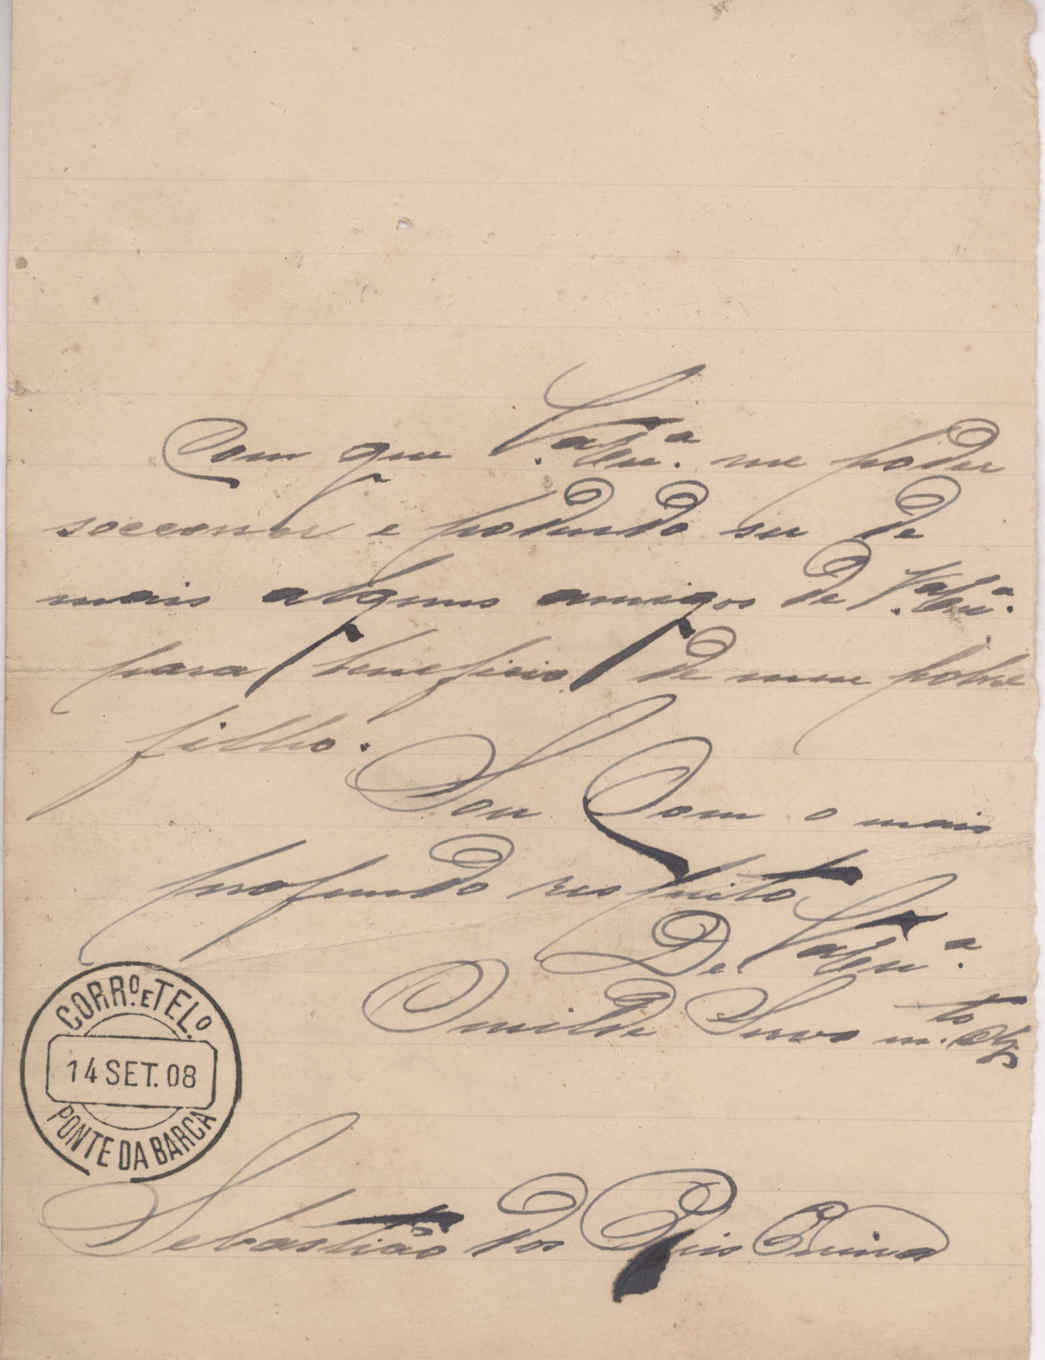 Com que V.ª Ex.ª me poder
soccorrer e podendo ser de
mais alguns amigos de V.ª Ex.ª
para beneficio de meu pobre
filho.
Sou Com o mais
profundo respeito
De V.ª Ex.ª
Servo m.to Obg
CORR.º E TEL.º
14 SET. 08
PONTE DA BARCA
Sebastião dos Reis